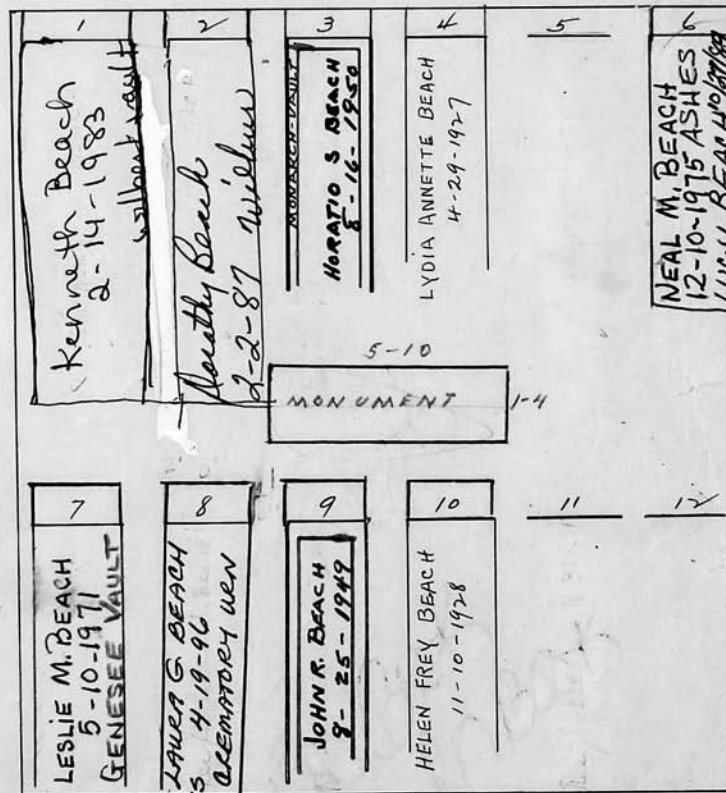 1
Kenneth Beach
2-14-1983
wilbert vault
2
Dorathy Beach
2-2-87 Wilbur
3
MONARCH-VAULT
HORATIO S BEACH
8-16-1950
4
LYDIA ANNETTE BEACH
4-29-1927
5
6
NEAL M. BEACH
12-10-1975 ASHES
BEACH
5-10
MONUMENT
1-4
7
LESLIE M. BEACH
5-10-1971
GENESEE VAULT
8
LAURA G. BEACH
4-19-96
CREMATORY URN
9
JOHN R. BEACH
8-25-1949
10
HELEN FREY BEACH
11-10-1928
11
12